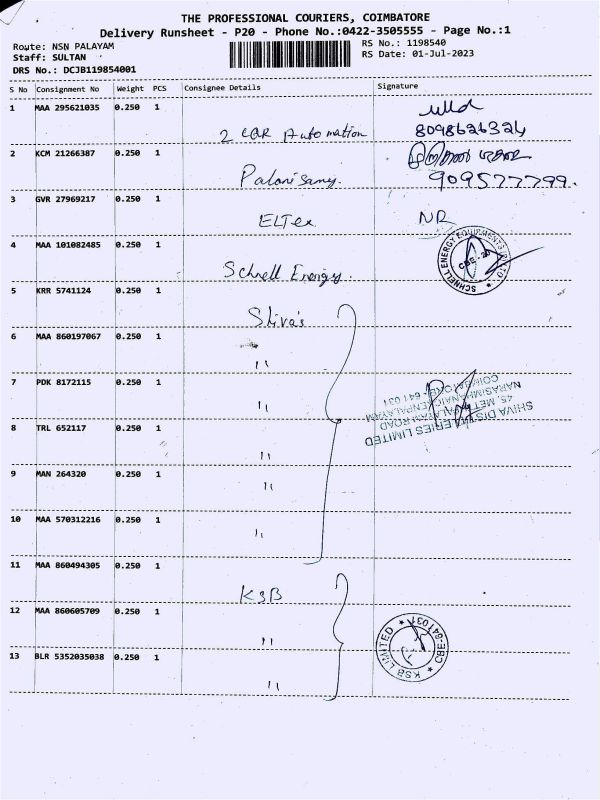 THE PROFESSIONAL COURIERS, COIMBATORE
Delivery Runsheet - P20 - Phone No.:0422-3505555 - Page No.:1
Route: NSN PALAYAM
RS No.: 1198540
Staff: SULTAN
RS Date: 01-Jul-2023
DRS No.: DCJB119854001
S No Consignment No Weight PCS Consignee Details Signature
1 MAA 295621035 0.250 1
2 CAR Automation 8098626324
2 KCM 21266387 0.250 1
Palanisamy. 909577799.
3 GVR 27969217 0.250 1
ELTex NR
4 MAA 101082485 0.250 1
Schnell Energy.
SCHNELL ENERGY EQUIPMENTS (P) LTD
CBE - 20
5 KRR 5741124 0.250 1
Shiva's
6 MAA 860197067 0.250 1
"
7 PDK 8172115 0.250 1
"
SHIVA DISTILLERIES LIMITED
45, METTUPALAYAM ROAD
NARASIMHANAICKENPALAYAM
COIMBATORE - 641 031
8 TRL 652117 0.250 1
"
9 MAN 264320 0.250 1
"
10 MAA 570312216 0.250 1
"
11 MAA 860494305 0.250 1
KSB
12 MAA 860605709 0.250 1
"
KSB LIMITED
CBE-641 031
13 BLR 5352035038 0.250 1
"